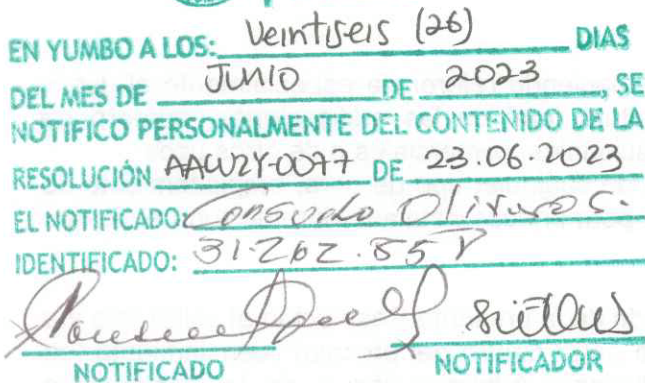 EN YUMBO A LOS: Veintiseis (26) DIAS
DEL MES DE JUNIO DE 2023, SE
NOTIFICO PERSONALMENTE DEL CONTENIDO DE LA
RESOLUCIÓN DE 23.06.2023
EL NOTIFICADO: Consuelo Oliveros C.
IDENTIFICADO:
NOTIFICADO NOTIFICADOR